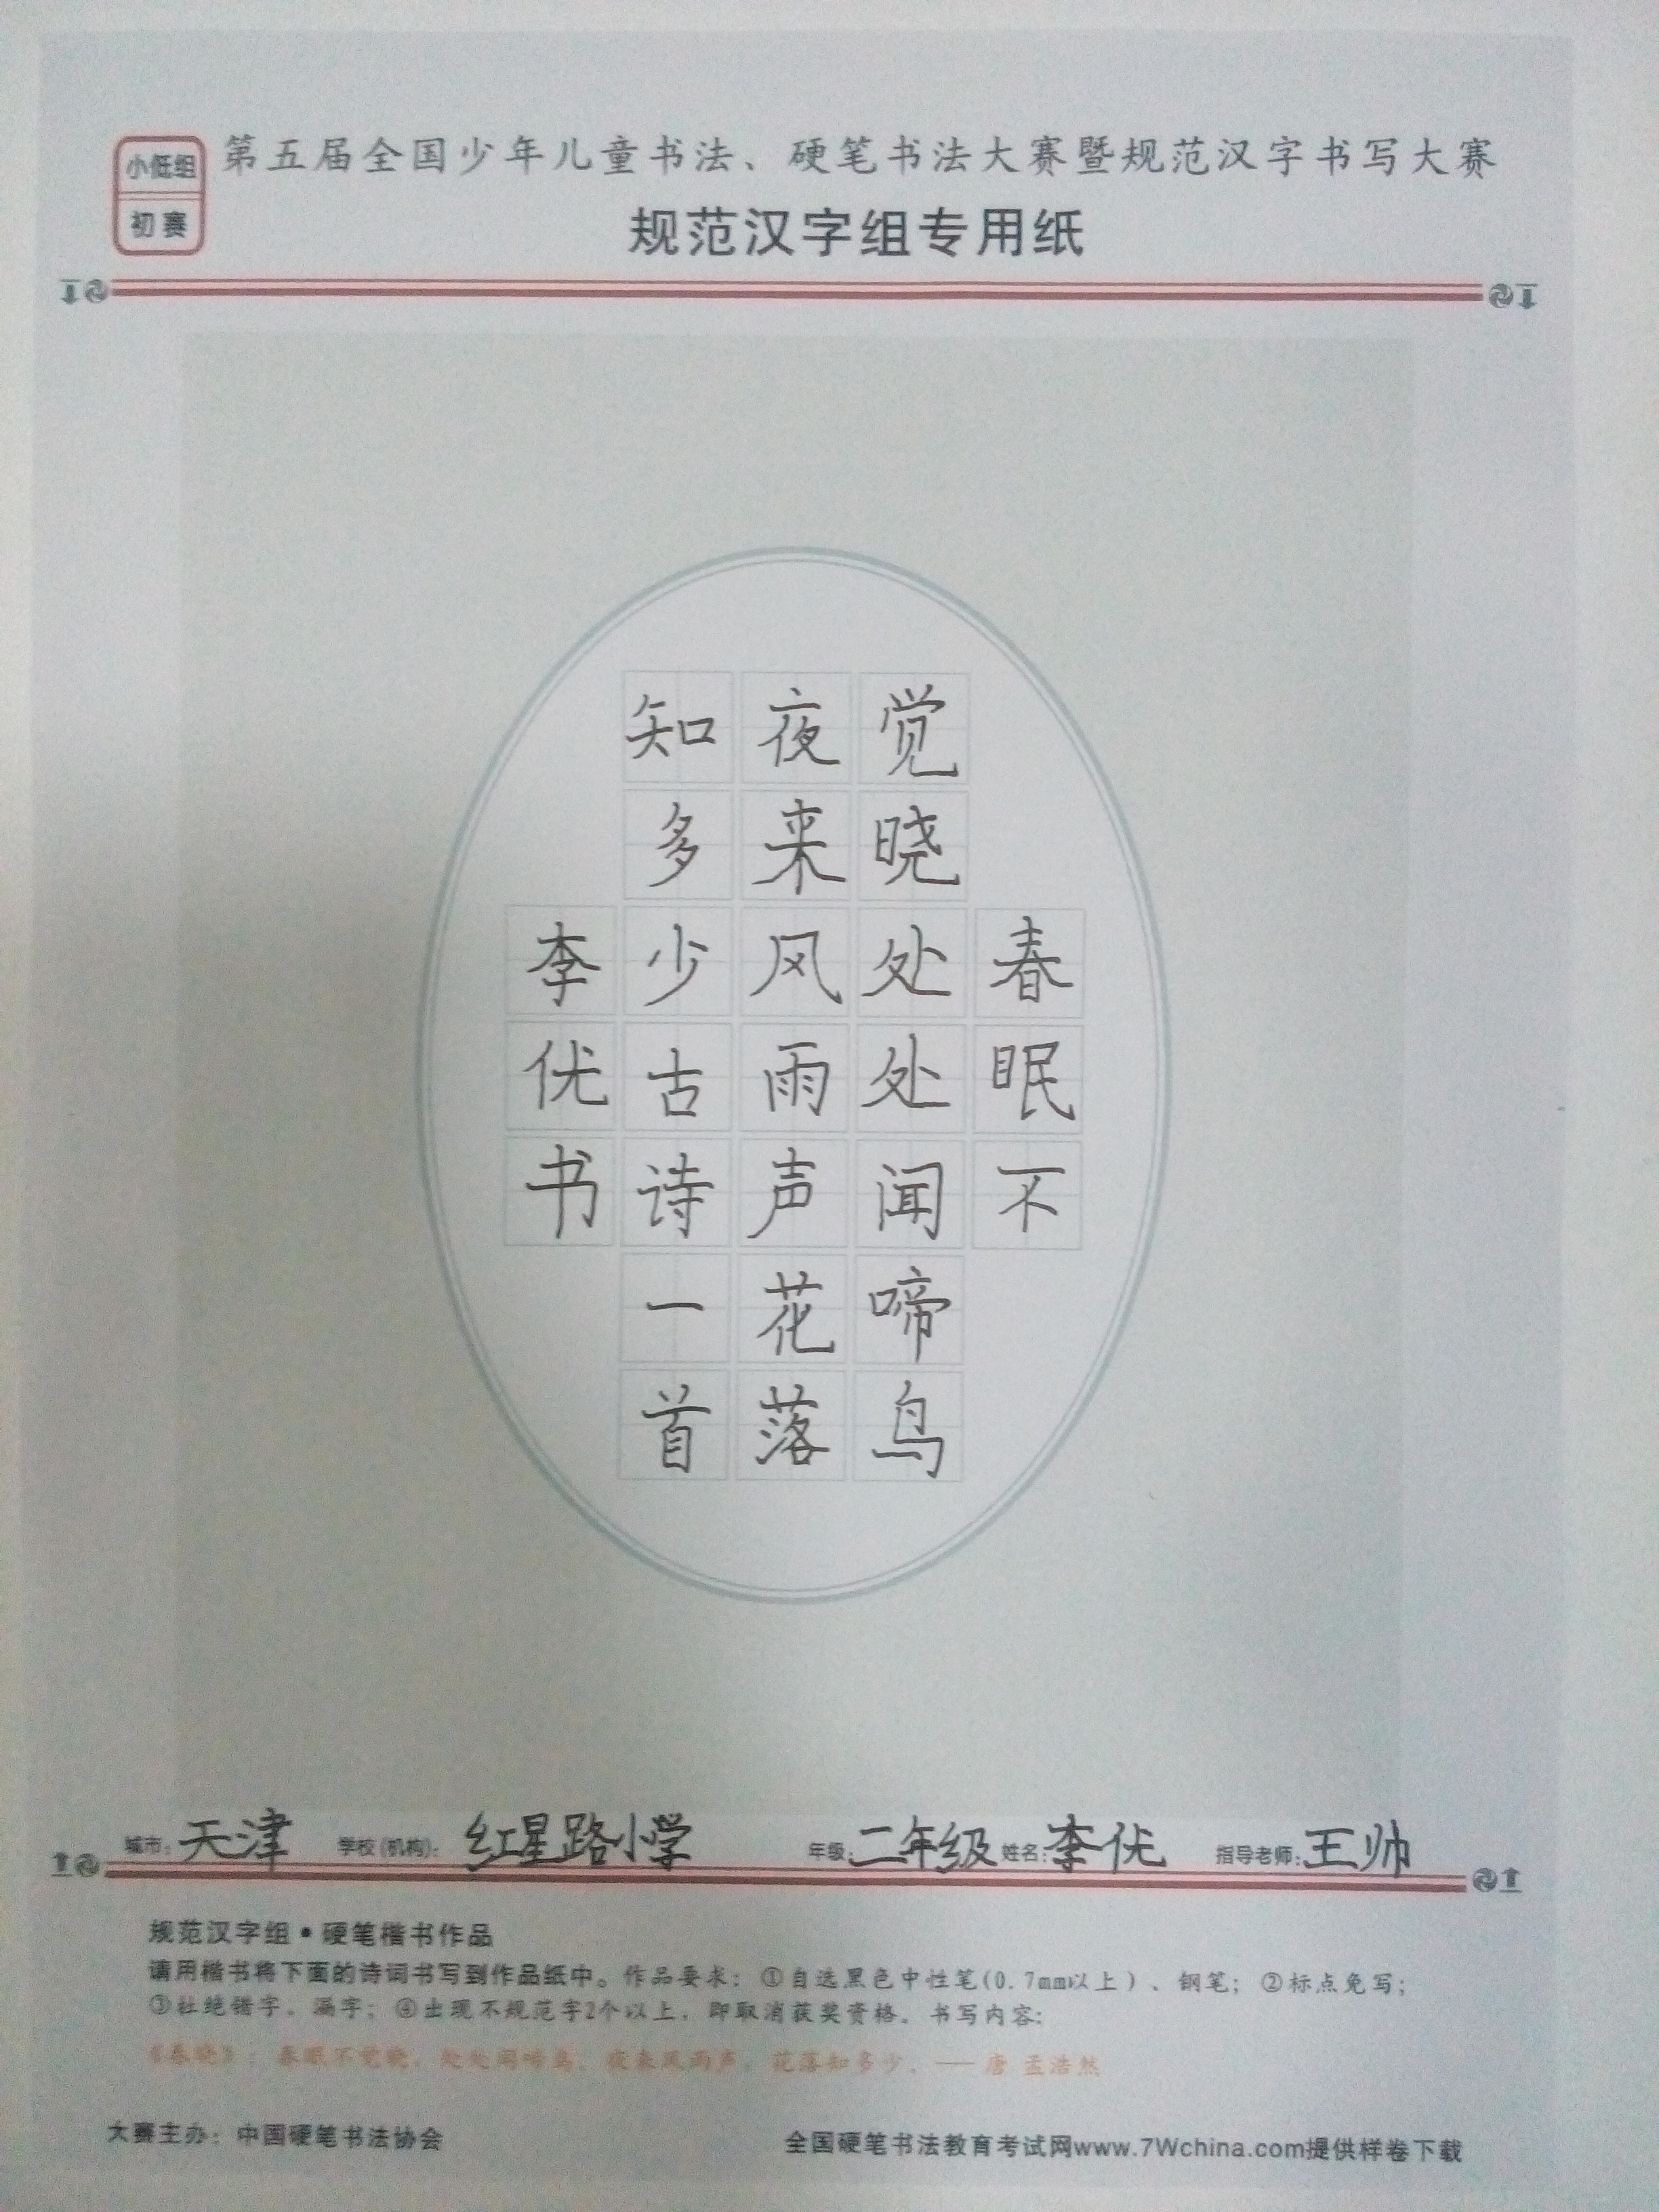 小低组
初赛
第五届全国少年儿童书法、硬笔书法大赛暨规范汉字书写大赛
规范汉字组专用纸
春眠不
觉晓处处闻啼鸟
夜来风雨声花落
知多少古诗一首
李优书
城市：天津 学校(机构)：红星路小学 年级：二年级 姓名：李优 指导老师：王帅
规范汉字组•硬笔楷书作品
请用楷书将下面的诗词书写到作品纸中。作品要求：①自选黑色中性笔(0.7mm以上)、钢笔；②标点免写；
③杜绝错字、漏字；④出现不规范字2个以上，即取消获奖资格。书写内容：
《春晓》：春眠不觉晓，处处闻啼鸟。夜来风雨声，花落知多少。——唐 孟浩然
大赛主办：中国硬笔书法协会
全国硬笔书法教育考试网www.7Wchina.com提供样卷下载